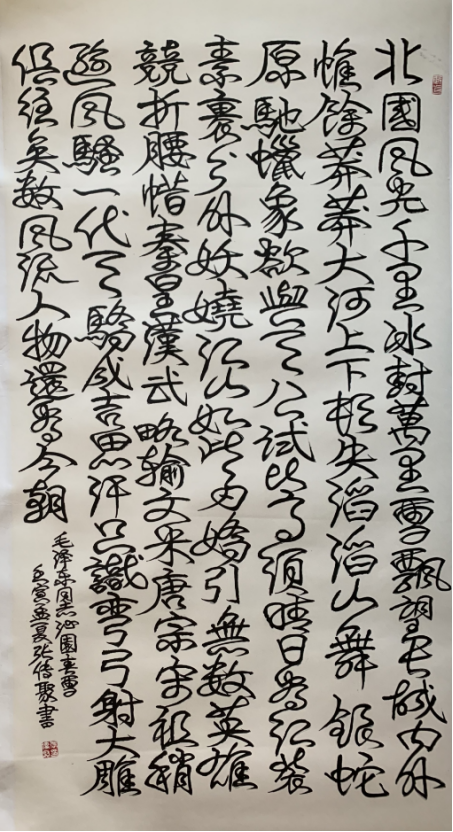 北國风光千里冰封萬里雪飄望长城内外
惟餘莽莽大河上下顿失滔滔山舞银蛇
原馳蠟象欲與天公試比高須晴日看红装
素裹分外妖嬈江山如此多嬌引無数英雄
競折腰惜秦皇漢武略输文采唐宗宋祖稍
逊风騷一代天驕成吉思汗只識彎弓射大雕
俱往矣数风流人物還看今朝
毛泽东同志沁園春雪
壬寅孟夏张传聚書